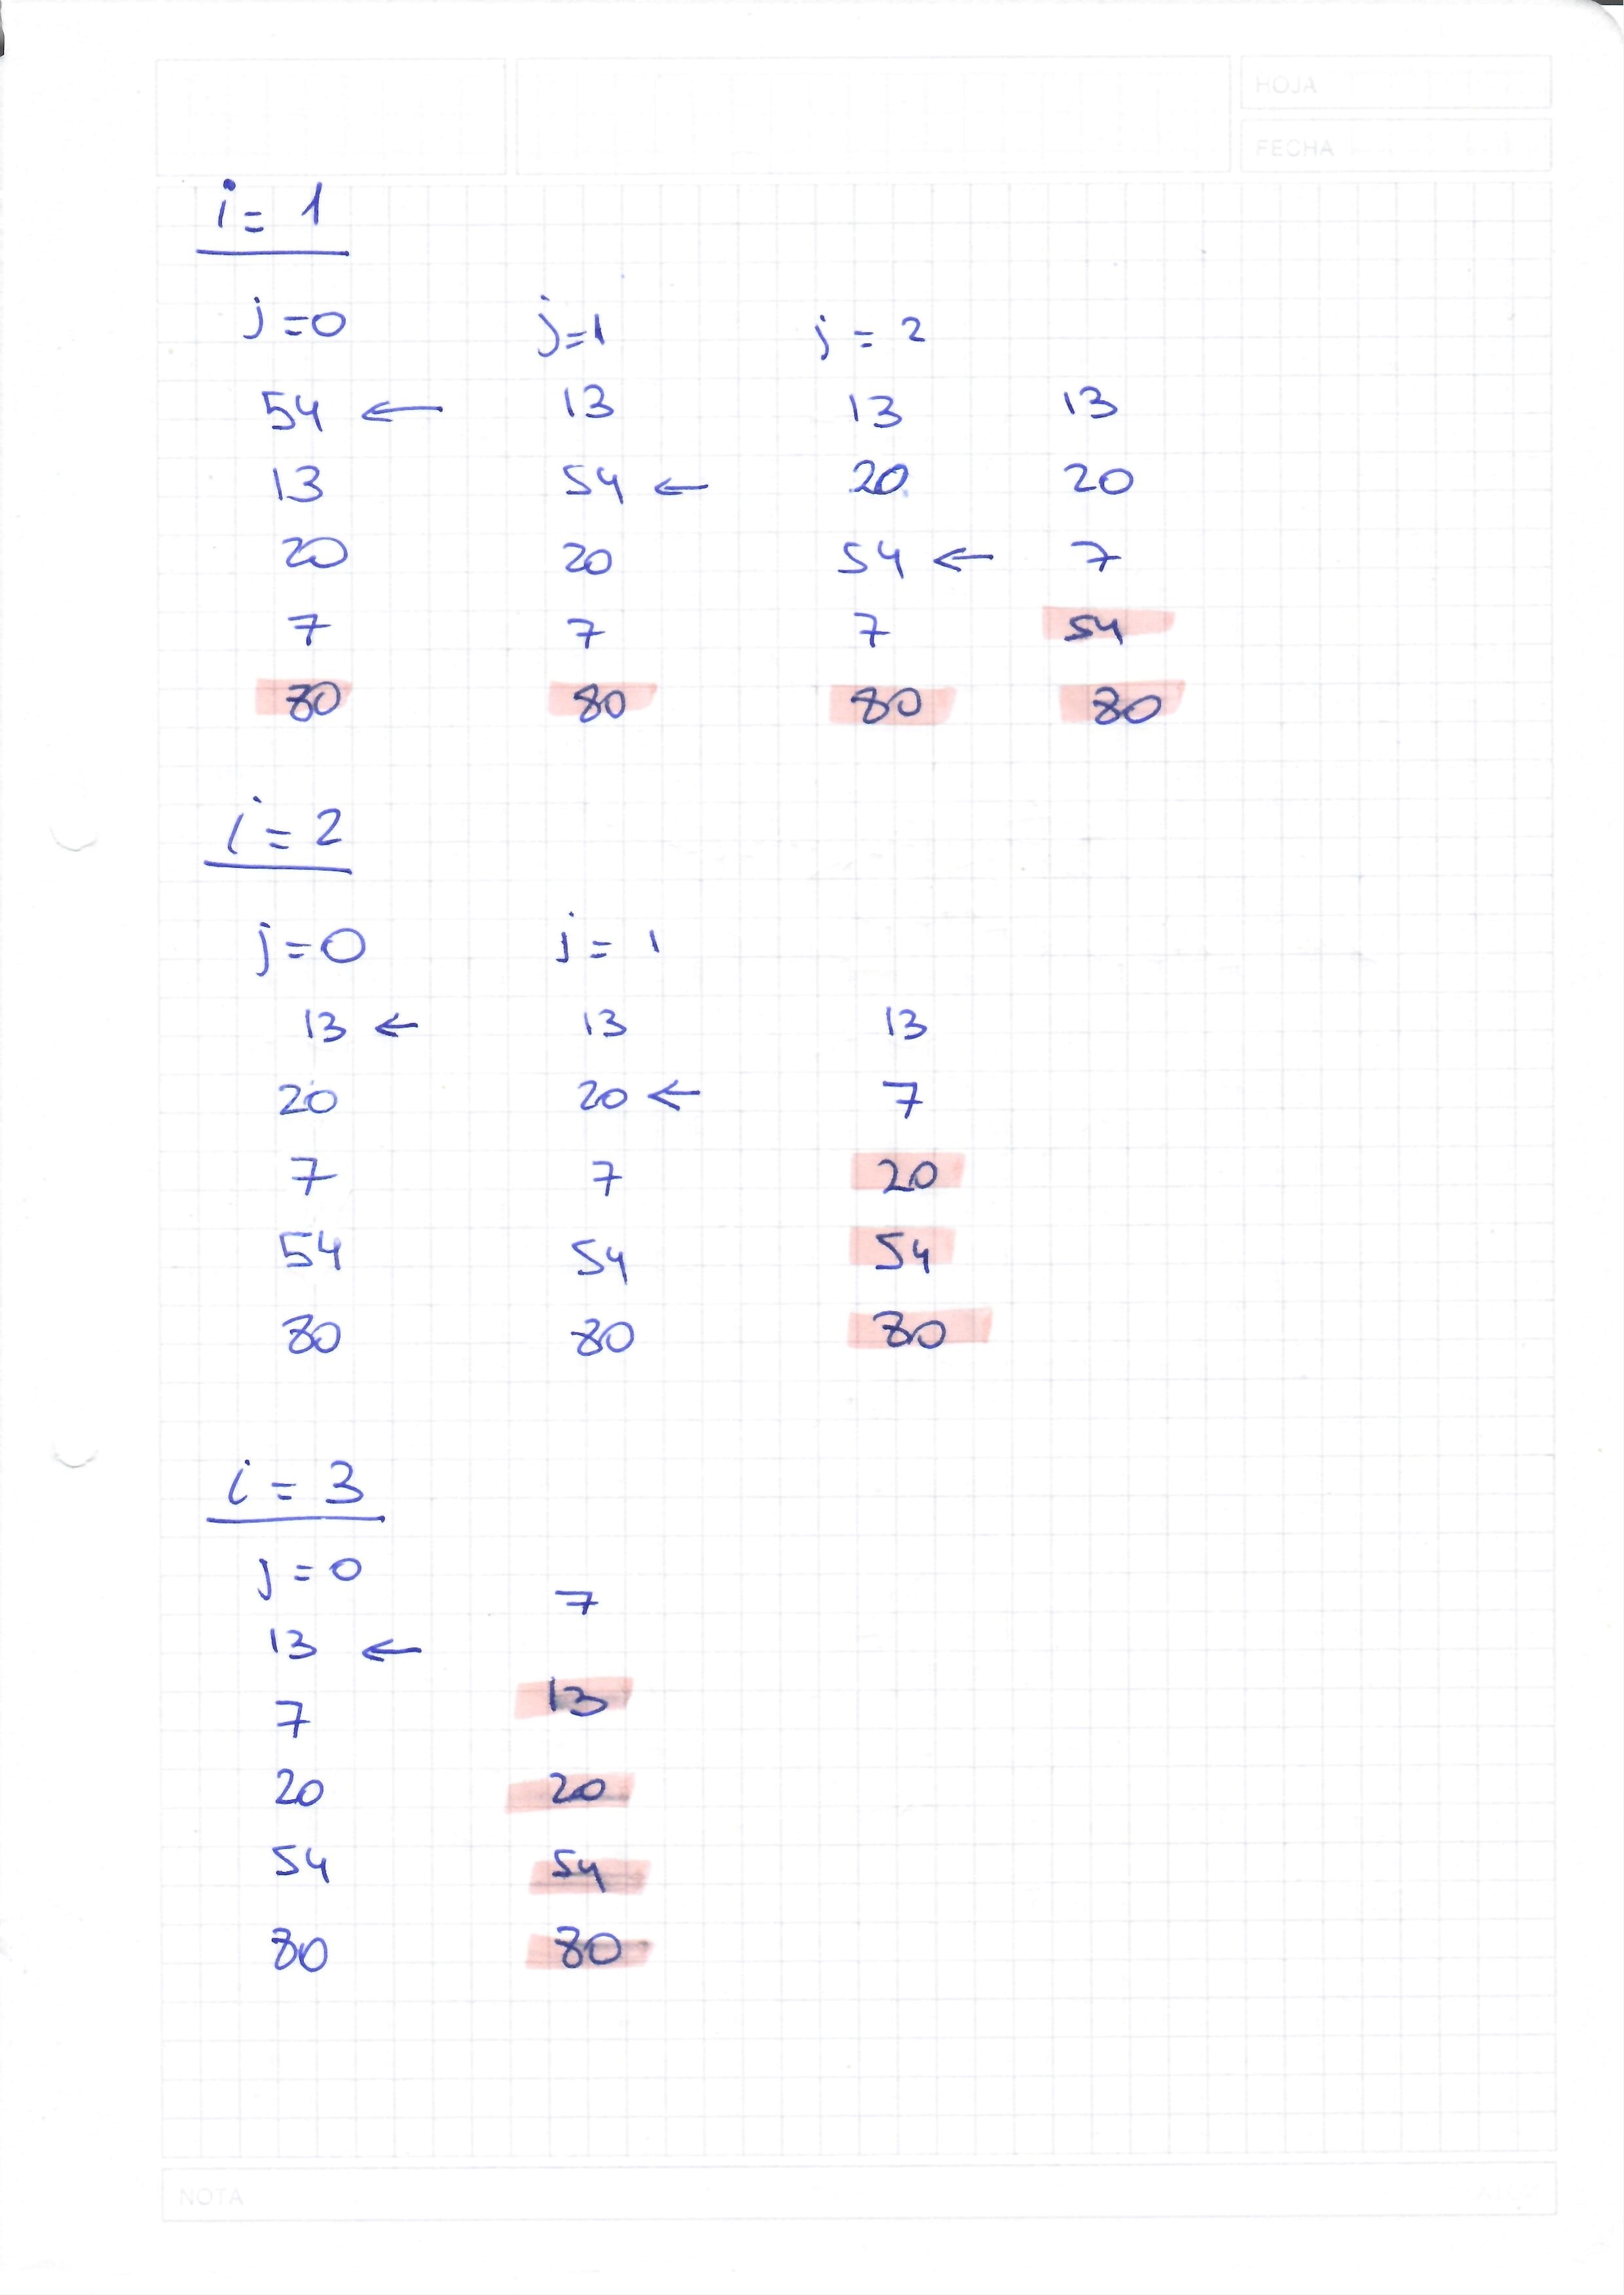 HOJA
FECHA
i = 1
j = 0 j = 1 j = 2
54 ← 13 13 13
13 54 ← 20 20
20 20 54 ← 7
7 7 7 54
80 80 80 80
i = 2
j = 0 j = 1
13 ← 13 13
20 20 ← 7
7 7 20
54 54 54
80 80 80
i = 3
j = 0
7
13 ←
13
7
20 20
54 54
80 80
NOTA